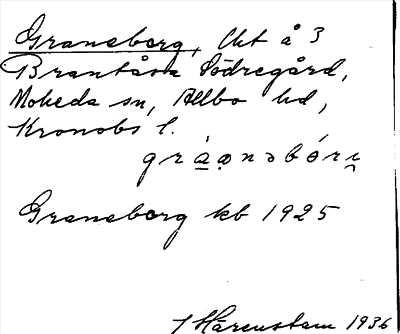 Graneborg, lht å 3
Brantåsa Södregård,
Moheda sn, Allbo hd,
Kronobs l.
gràanəbórj
Graneborg kb 1925
J Härenstam 1936